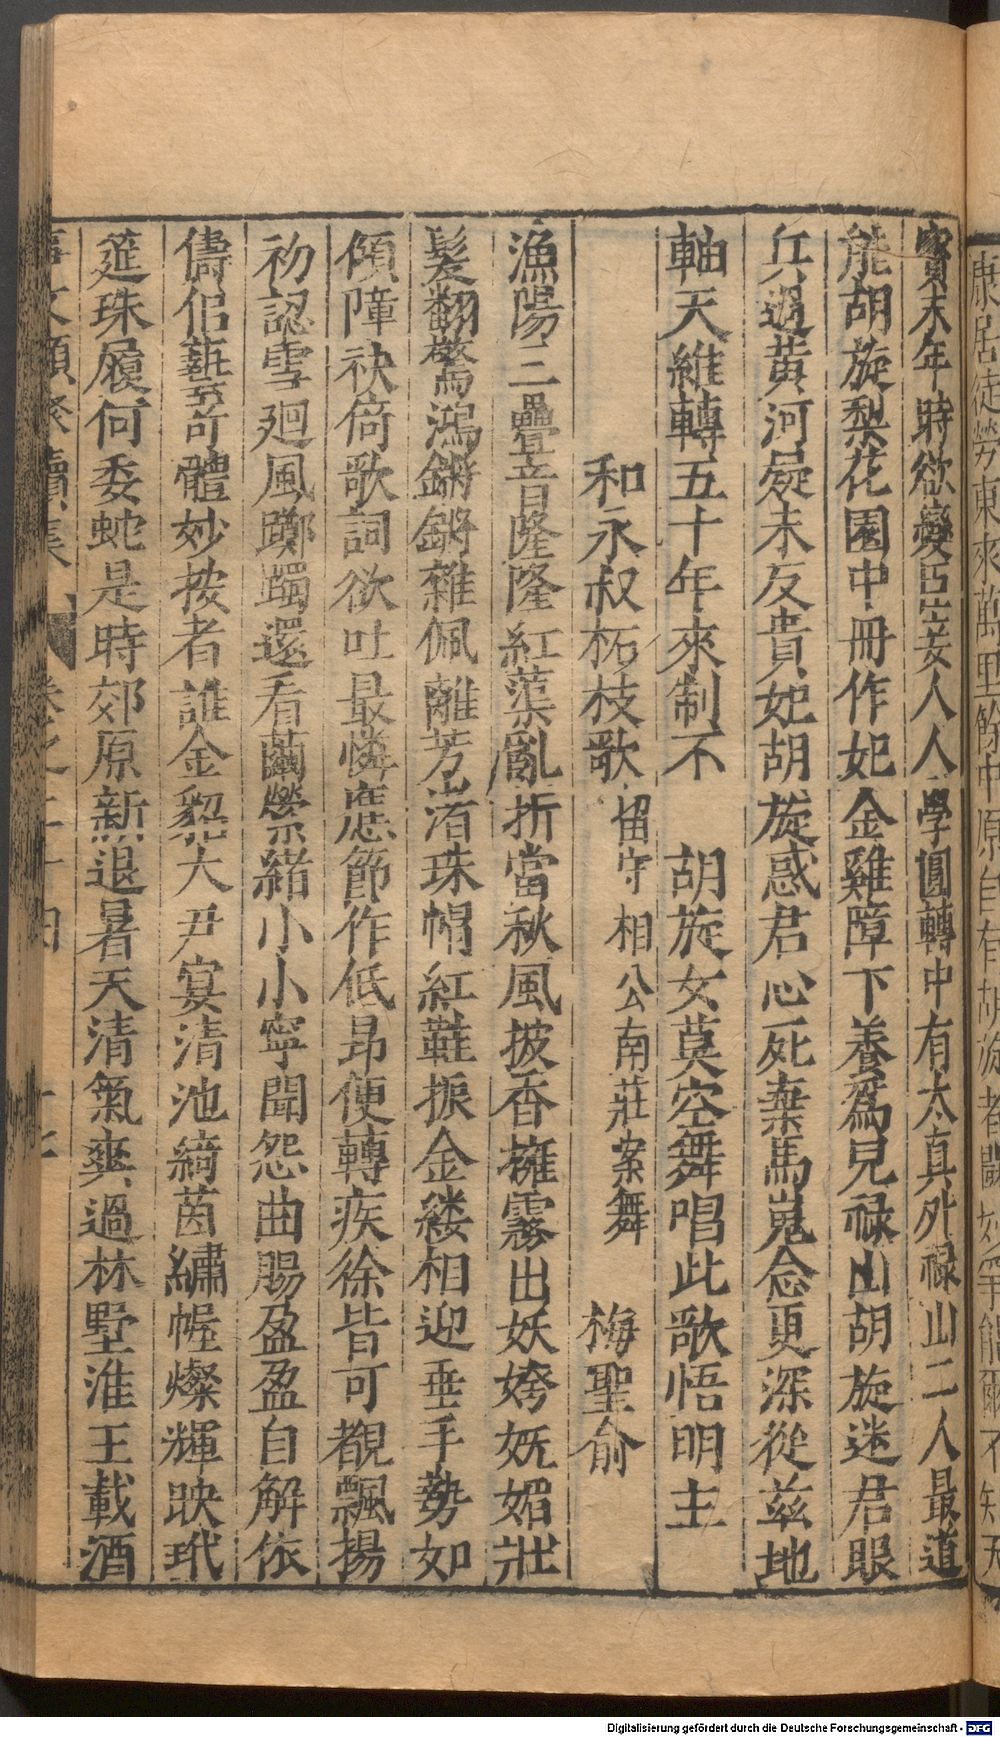 康居徒勞東來萬里餘中原自有胡旋者鬭妙爭能爾不知天
寶末年時欲變臣妾人人學圓轉中有太真外祿山二人最道
能胡旋梨花園中冊作妃金雞障下養爲兒祿山胡旋迷君眼
兵過黃河疑未反貴妃胡旋惑君心死棄馬嵬念更深從茲地
軸天維轉五十年來制不　胡旋女莫空舞唱此歌悟明主
和永叔柘枝歌 留守相公南莊案舞　梅聖俞
漁陽三疊音隆隆紅蕖亂折當秋風披香擁霧出妖嫮妩媚壯
髮翻驚鴻鏘鏘雜佩離芳渚珠帽紅鞾振金縷相迎垂手勢如
傾障袂倚歌詞欲吐最憐應節作低昂便轉疾徐皆可覩飄揚
初認雪廻風躑躅還看繭縈緒小小寧聞怨曲賜盈盈自解依
儔侶藝奇體妙按者誰金貂大尹宴清池綺茵繡幄燦輝映玳
筵珠履何委蛇是時郊原新退暑天清氣爽過林墅淮王載酒
事文類聚續集 卷之二十四 十七
Digitalisierung gefördert durch die Deutsche Forschungsgemeinschaft - DFG